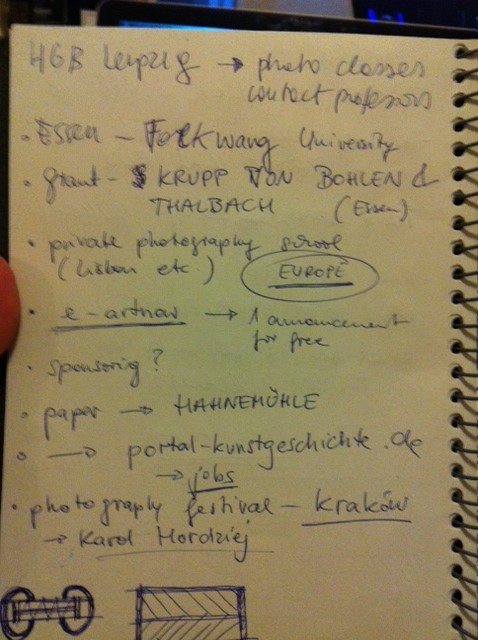 HGB Leipzig → photo classes
contact professors
• Essen – Folkwang University
• grant – KRUPP VON BOHLEN &
THALBACH (Essen)
• private photography school
(Lisbon etc.) EUROPE
• e-artnow → 1 announcement
for free
• sponsoring?
• paper → HAHNEMÜHLE
• → portal-kunstgeschichte.de
→ jobs
• photography festival – Kraków
→ Karol Hordziej